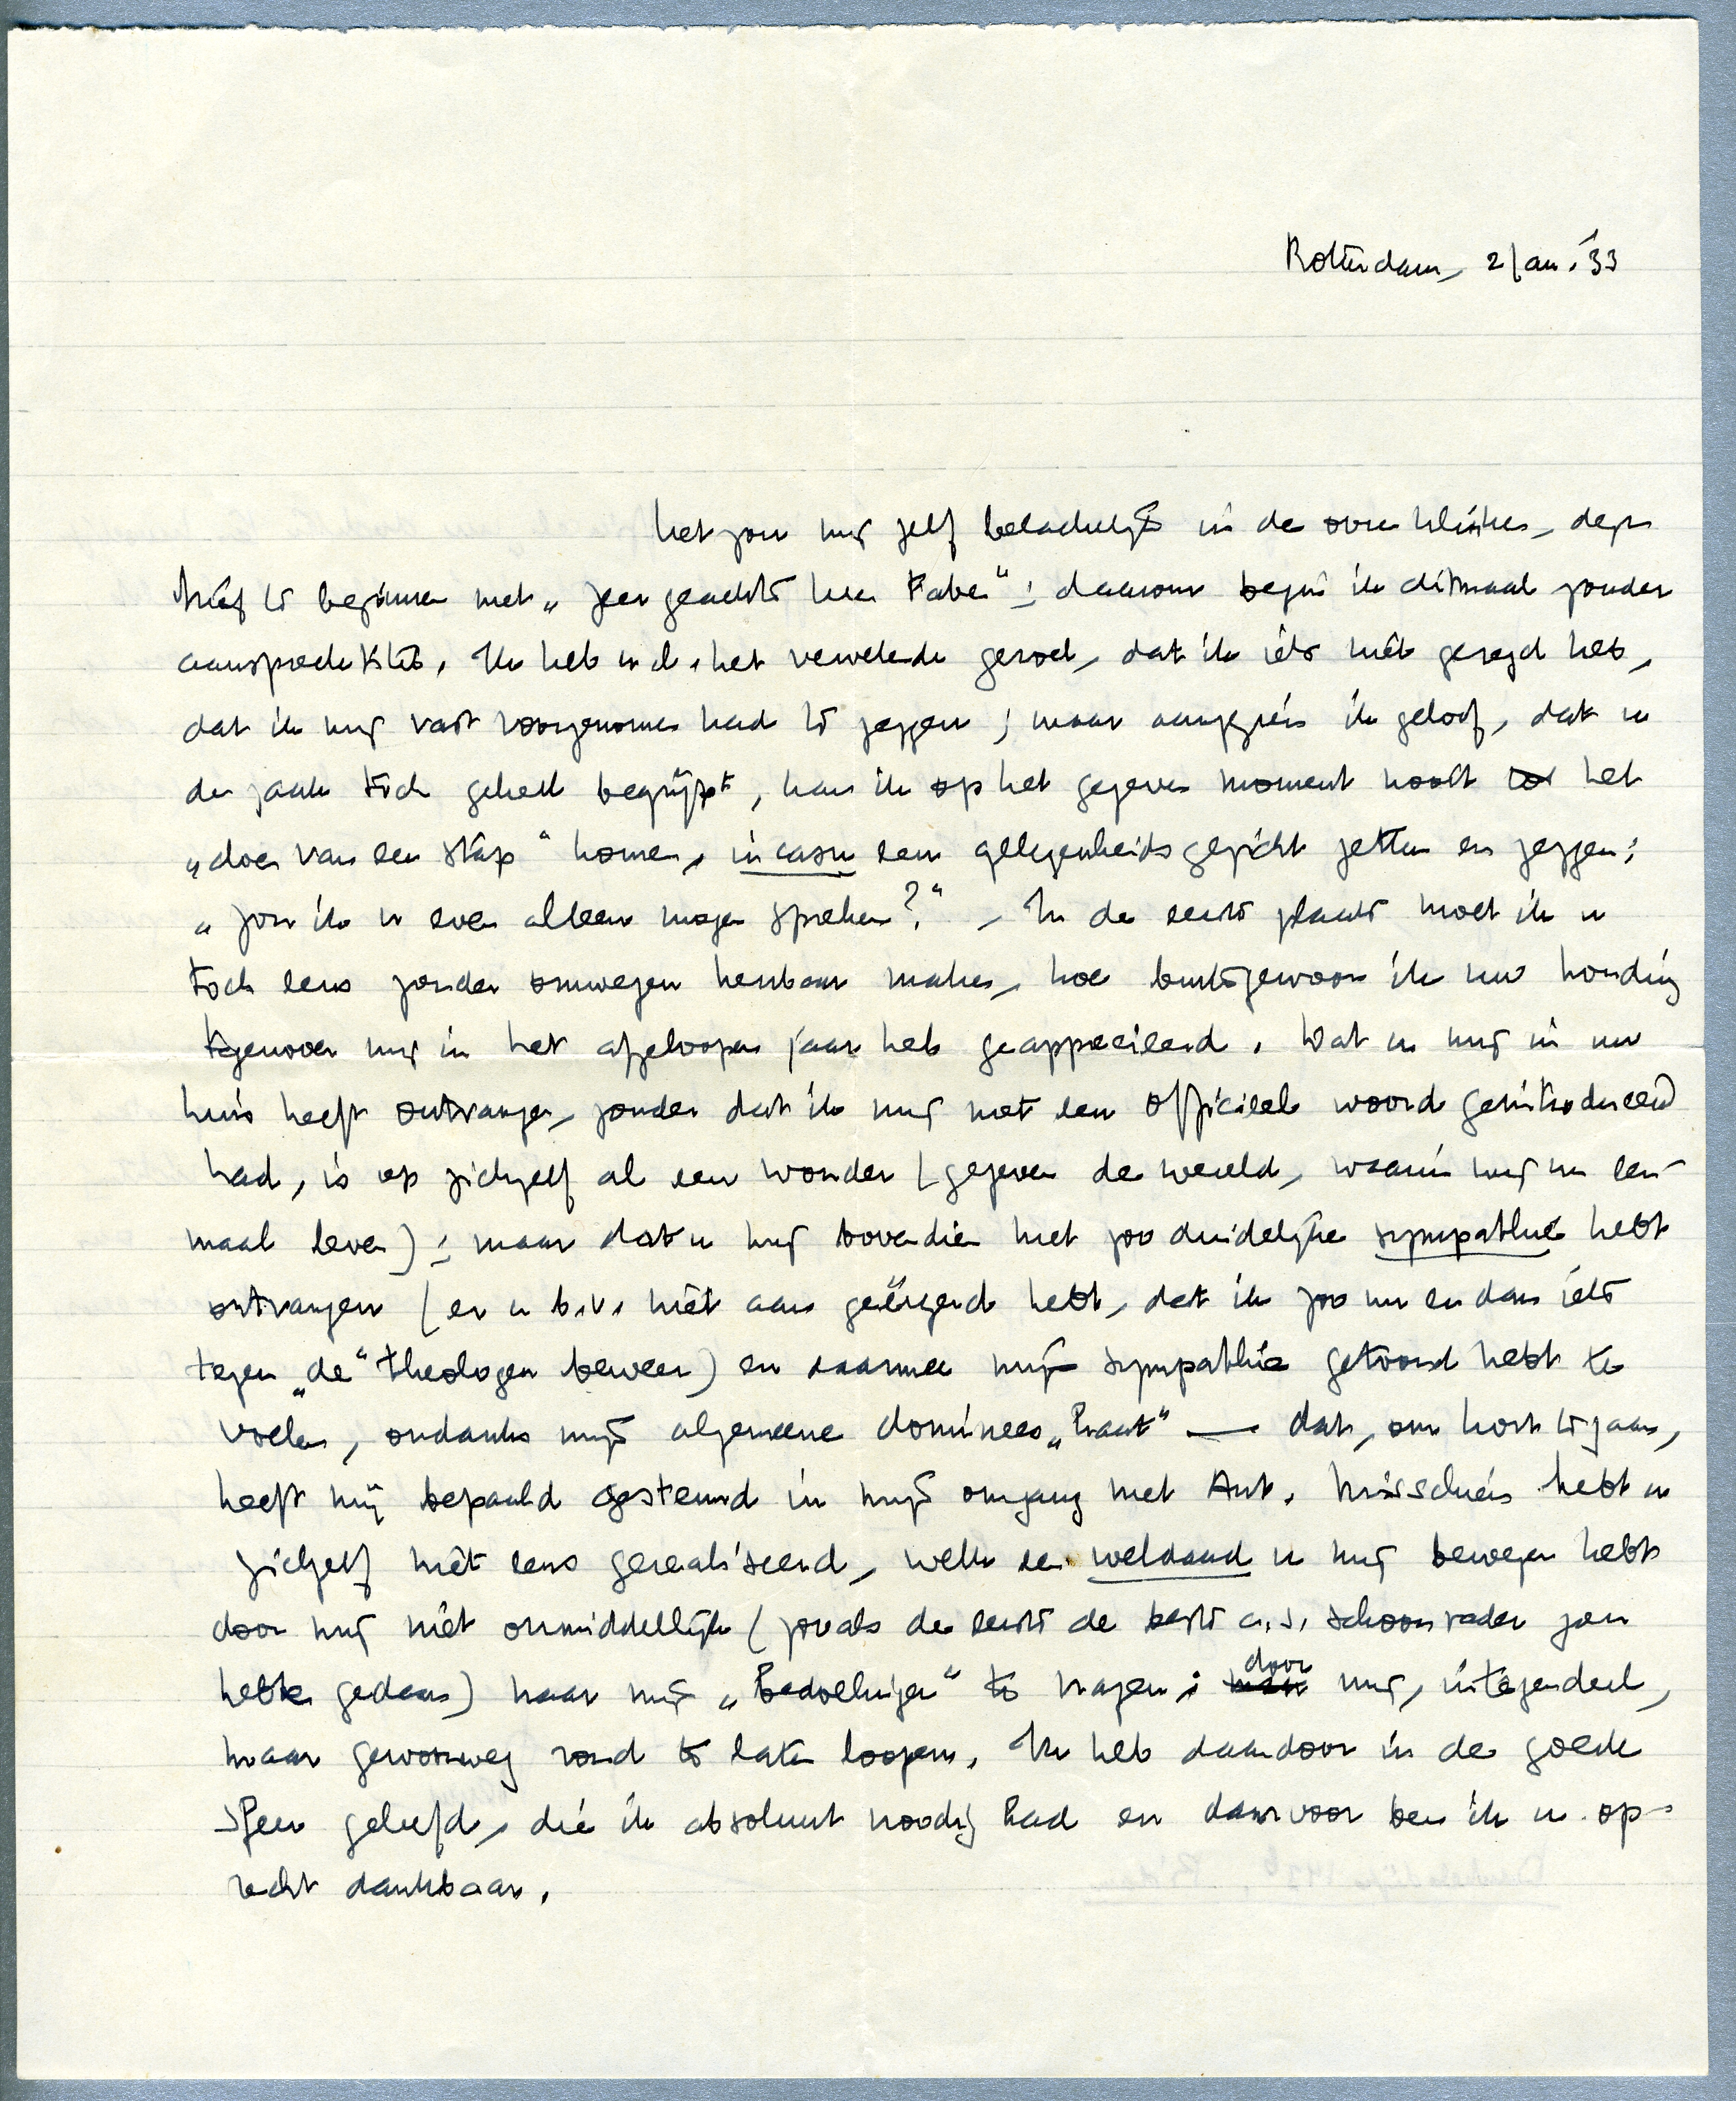 Rotterdam, 2 Jan. '33
Het zou mij zelf belachelijk in de ooren klinken, deze
brief te beginnen met „zeer geachte heer Faber“; daarom begin ik ditmaal zonder
aanspraktitel. Ik heb n.l. het vervelende gevoel, dat ik iets niet gezegd heb,
dat ik mij vast voorgenomen had te zeggen; maar aangezien ik geloof, dat u
de zaak toch geheel begrijpt, kon ik op het gegeven moment nooit tot het
„doen van een stap“ komen, in casu een gelegenheidsgezicht zetten en zeggen:
„zou ik u even alleen mogen spreken?“ – In de eerste plaats moet ik u
toch eens zonder omwegen kenbaar maken, hoe buitengewoon ik uw houding
tegenover mij in het afgeloopen jaar heb geapprecieerd. Dat u mij in uw
huis heeft ontvangen, zonder dat ik mij met een officieel woord geïntroduceerd
had, is op zichzelf al een wonder (gegeven de wereld, waarin wij nu een-
maal leven); maar dat u mij bovendien met zoo duidelijke sympathie hebt
ontvangen (en u b.v. niet aan geërgerd hebt, dat ik zoo nu en dan iets
tegen „de“ theologen beweer) en daarmee mijn sympathie getoond hebt te
voelen, ondanks mijn algemeene dominees„haat“ — dat, om kort te gaan,
heeft mij bepaald gesteund in mijn omgang met Ant. Misschien hebt u
zichzelf niet eens gerealiseerd, welk een weldaad u mij bewezen hebt
door mij niet onmiddellijk (zooals de eerste de beste a.s. schoonvader zou
hebben gedaan) naar mijn „bedoelingen“ te vragen; door mij, integendeel,
maar gewoonweg rond te laten loopen. Ik heb daardoor in de goede
sfeer geleefd, die ik absoluut noodig had en daarvoor ben ik u op-
recht dankbaar.